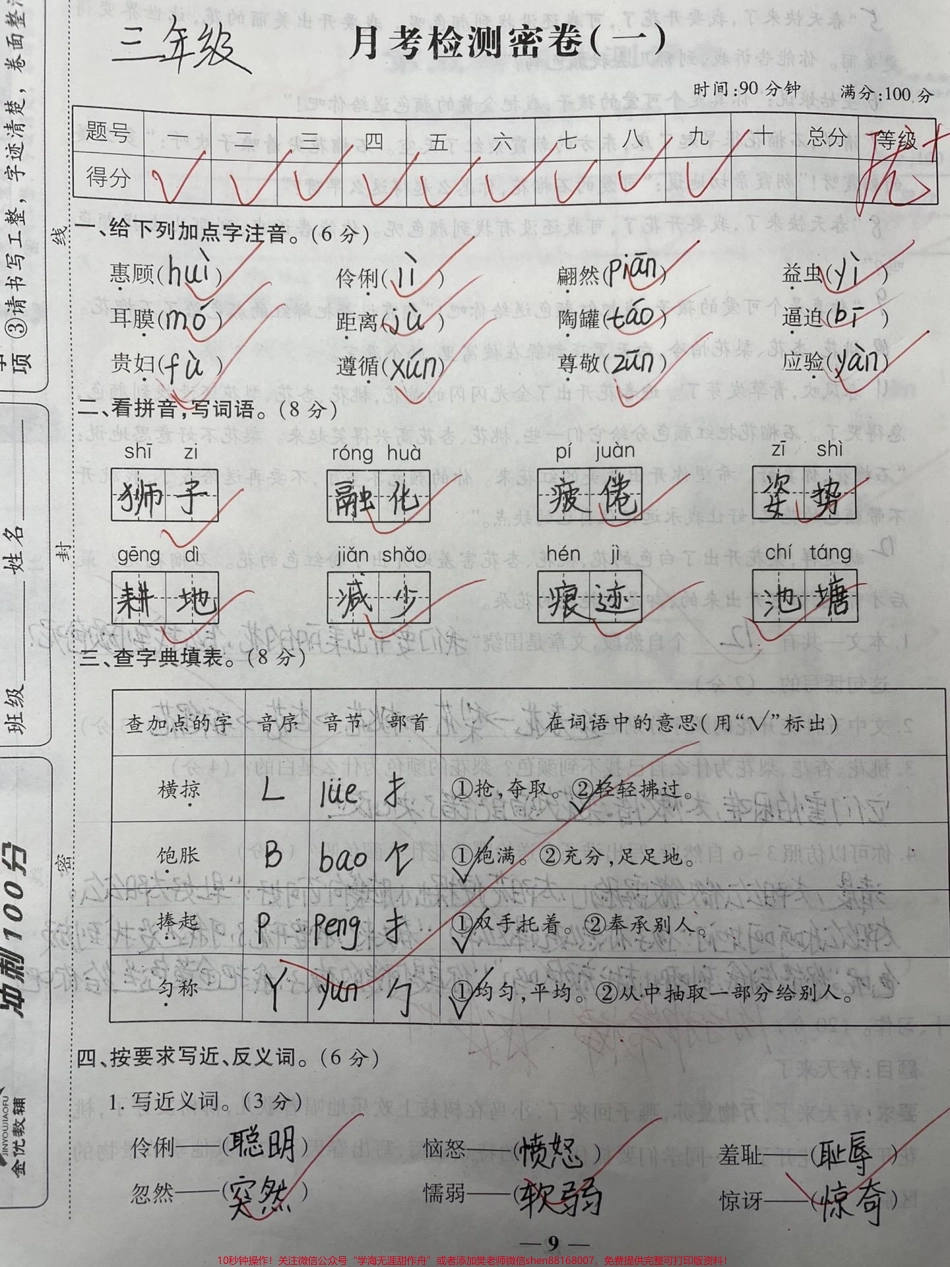 三年级
月考检测密卷(一)
时间:90分钟 满分:100分
题号 一 二 三 四 五 六 七 八 九 十 总分 等级
得分 优+
一、给下列加点字注音。(6分)
惠顾(huì) 伶俐(lì) 翩然(piān) 益虫(yì)
耳膜(mó) 距离(jù) 陶罐(táo) 逼迫(bī)
贵妇(fù) 遵循(xún) 尊敬(zūn) 应验(yàn)
二、看拼音,写词语。(8分)
shī zi róng huà pí juàn zī shì
狮子 融化 疲倦 姿势
gēng dì jiǎn shǎo hén jì chí táng
耕地 减少 痕迹 池塘
三、查字典填表。(8分)
查加点的字 音序 音节 部首 在词语中的意思(用“√”标出)
横掠 L lüe 扌 ①抢,夺取。②轻轻拂过。
饱胀 B bao 饣 ①饱满。②充分,足足地。
捧起 P peng 扌 ①双手托着。②奉承别人。
匀称 Y yun 勹 ①均匀,平均。②从中抽取一部分给别人。
四、按要求写近、反义词。(6分)
1.写近义词。(3分)
伶俐——(聪明) 恼怒——(愤怒) 羞耻——(耻辱)
忽然——(突然) 懦弱——(软弱) 惊讶——(惊奇)
— 9 —
10秒钟操作!关注微信公众号“学海无涯甜作舟”或者添加樊老师微信shen88168007,免费提供完整可打印版资料!
③请书写工整,字迹清楚,卷面整
项
线
封
密
姓名
班级
冲刺100分
JINYOUJIAOFU
金优教辅